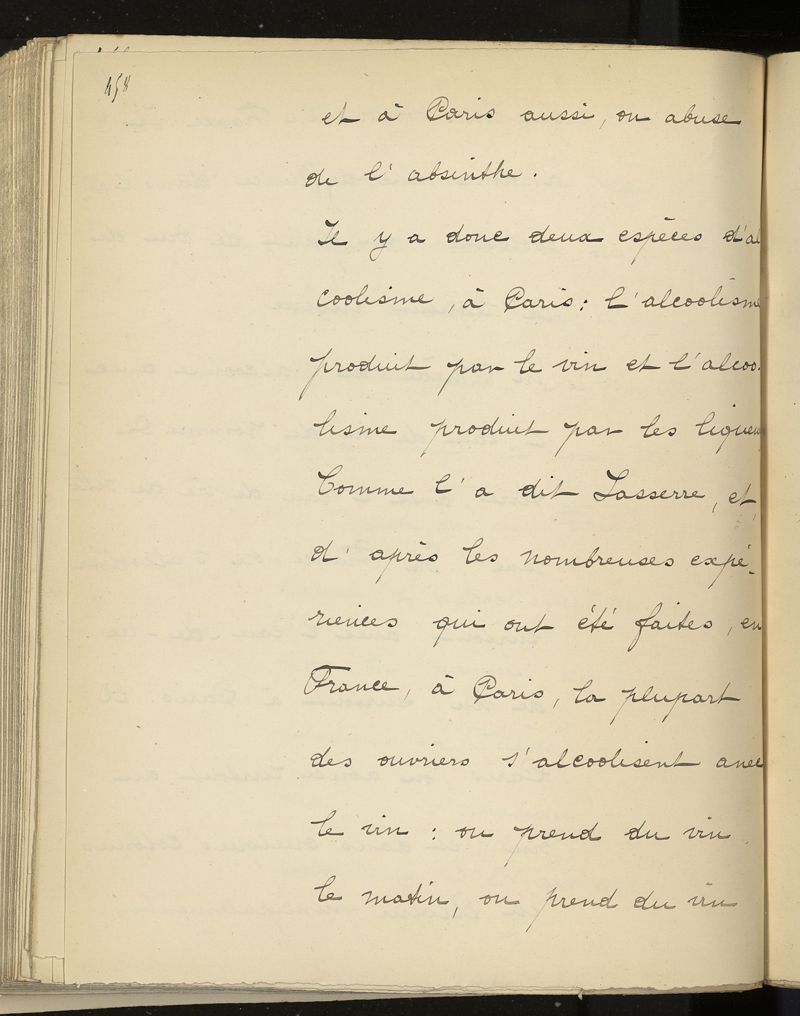 458
et à Paris aussi, on abuse
de l'absinthe.
Il y a donc deux espèces d'al
coolisme, à Paris : l'alcoolisme
produit par le vin et l'alcoo-
lisme produit par les liqueu
Comme l'a dit Lasserre, et,
d'après les nombreuses expé-
riences qui ont été faites, en
France, à Paris, la plupart
des ouvriers s'alcoolisent avec
le vin : on prend du vin
le matin, on prend du vin